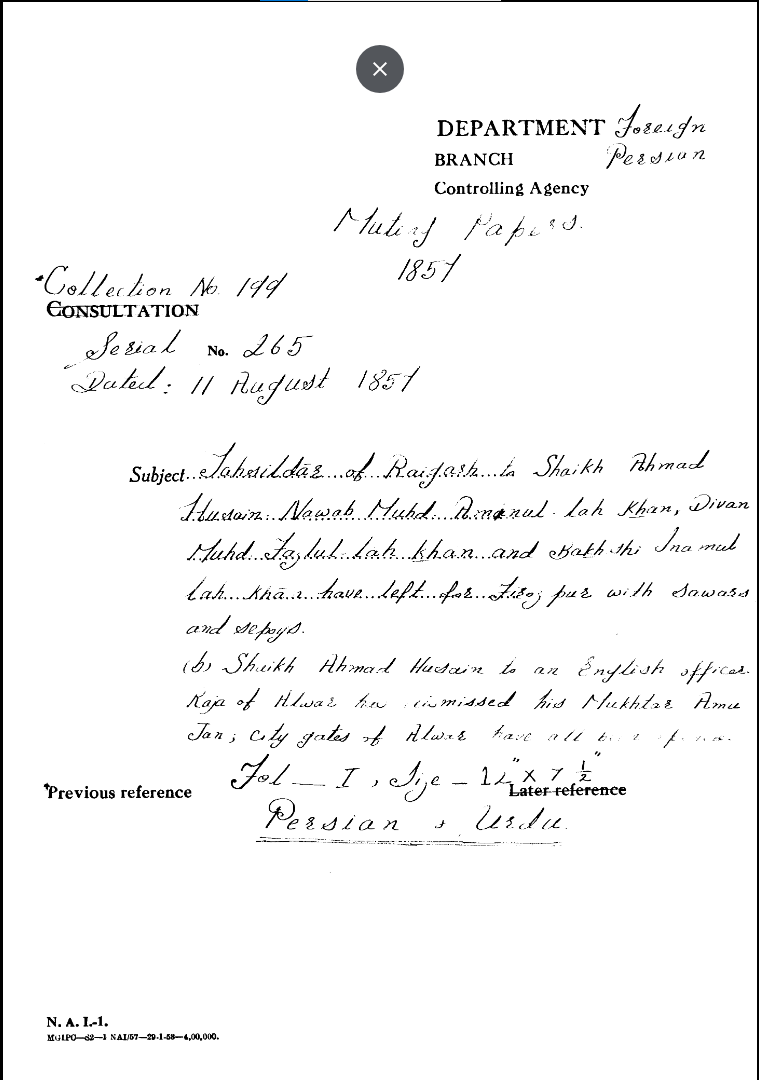 DEPARTMENT Foreign
BRANCH Persian
Controlling Agency
Mutiny Papers.
1857
*Collection No. 199
CONSULTATION
Serial No. 265
Dated: 11 August 1857
Subject...Tahsildar of Raigarh to Shaikh Ahmad
Husain. Nawab Muhd Amanul lah Khan, Divan
Muhd Fazlul lah khan and Bakhshi Inamul
lah Khan have left for Firoz pur with sawars
and sepoys.
(b) Shaikh Ahmad Husain to an English officer.
Raja of Alwar has dismissed his Mukhtar Amu
Jan; city gates of Alwar have all
Fol — I, Size — 12" X 7 1/2"
*Previous reference
Later reference
Persian & Urdu.
N. A. I.-1.
MGIPC—S2—1 NAI/57—29-1-58—4,00,000.